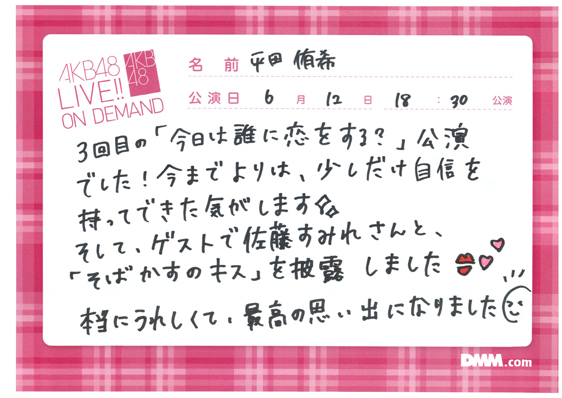 AKB48
LIVE!!
ON DEMAND
AKB
48
名 前 平田 侑希
公演日 6 月 12 日 18 : 30 公演
3回目の「今日は誰に恋をする?」公演
でした!今までよりは、少しだけ自信を
持ってできた気がします
そして、ゲストで佐藤すみれさんと、
「そばかすのキス」を披露 しました
本当にうれしくて、最高の思い出になりました
DMM.com